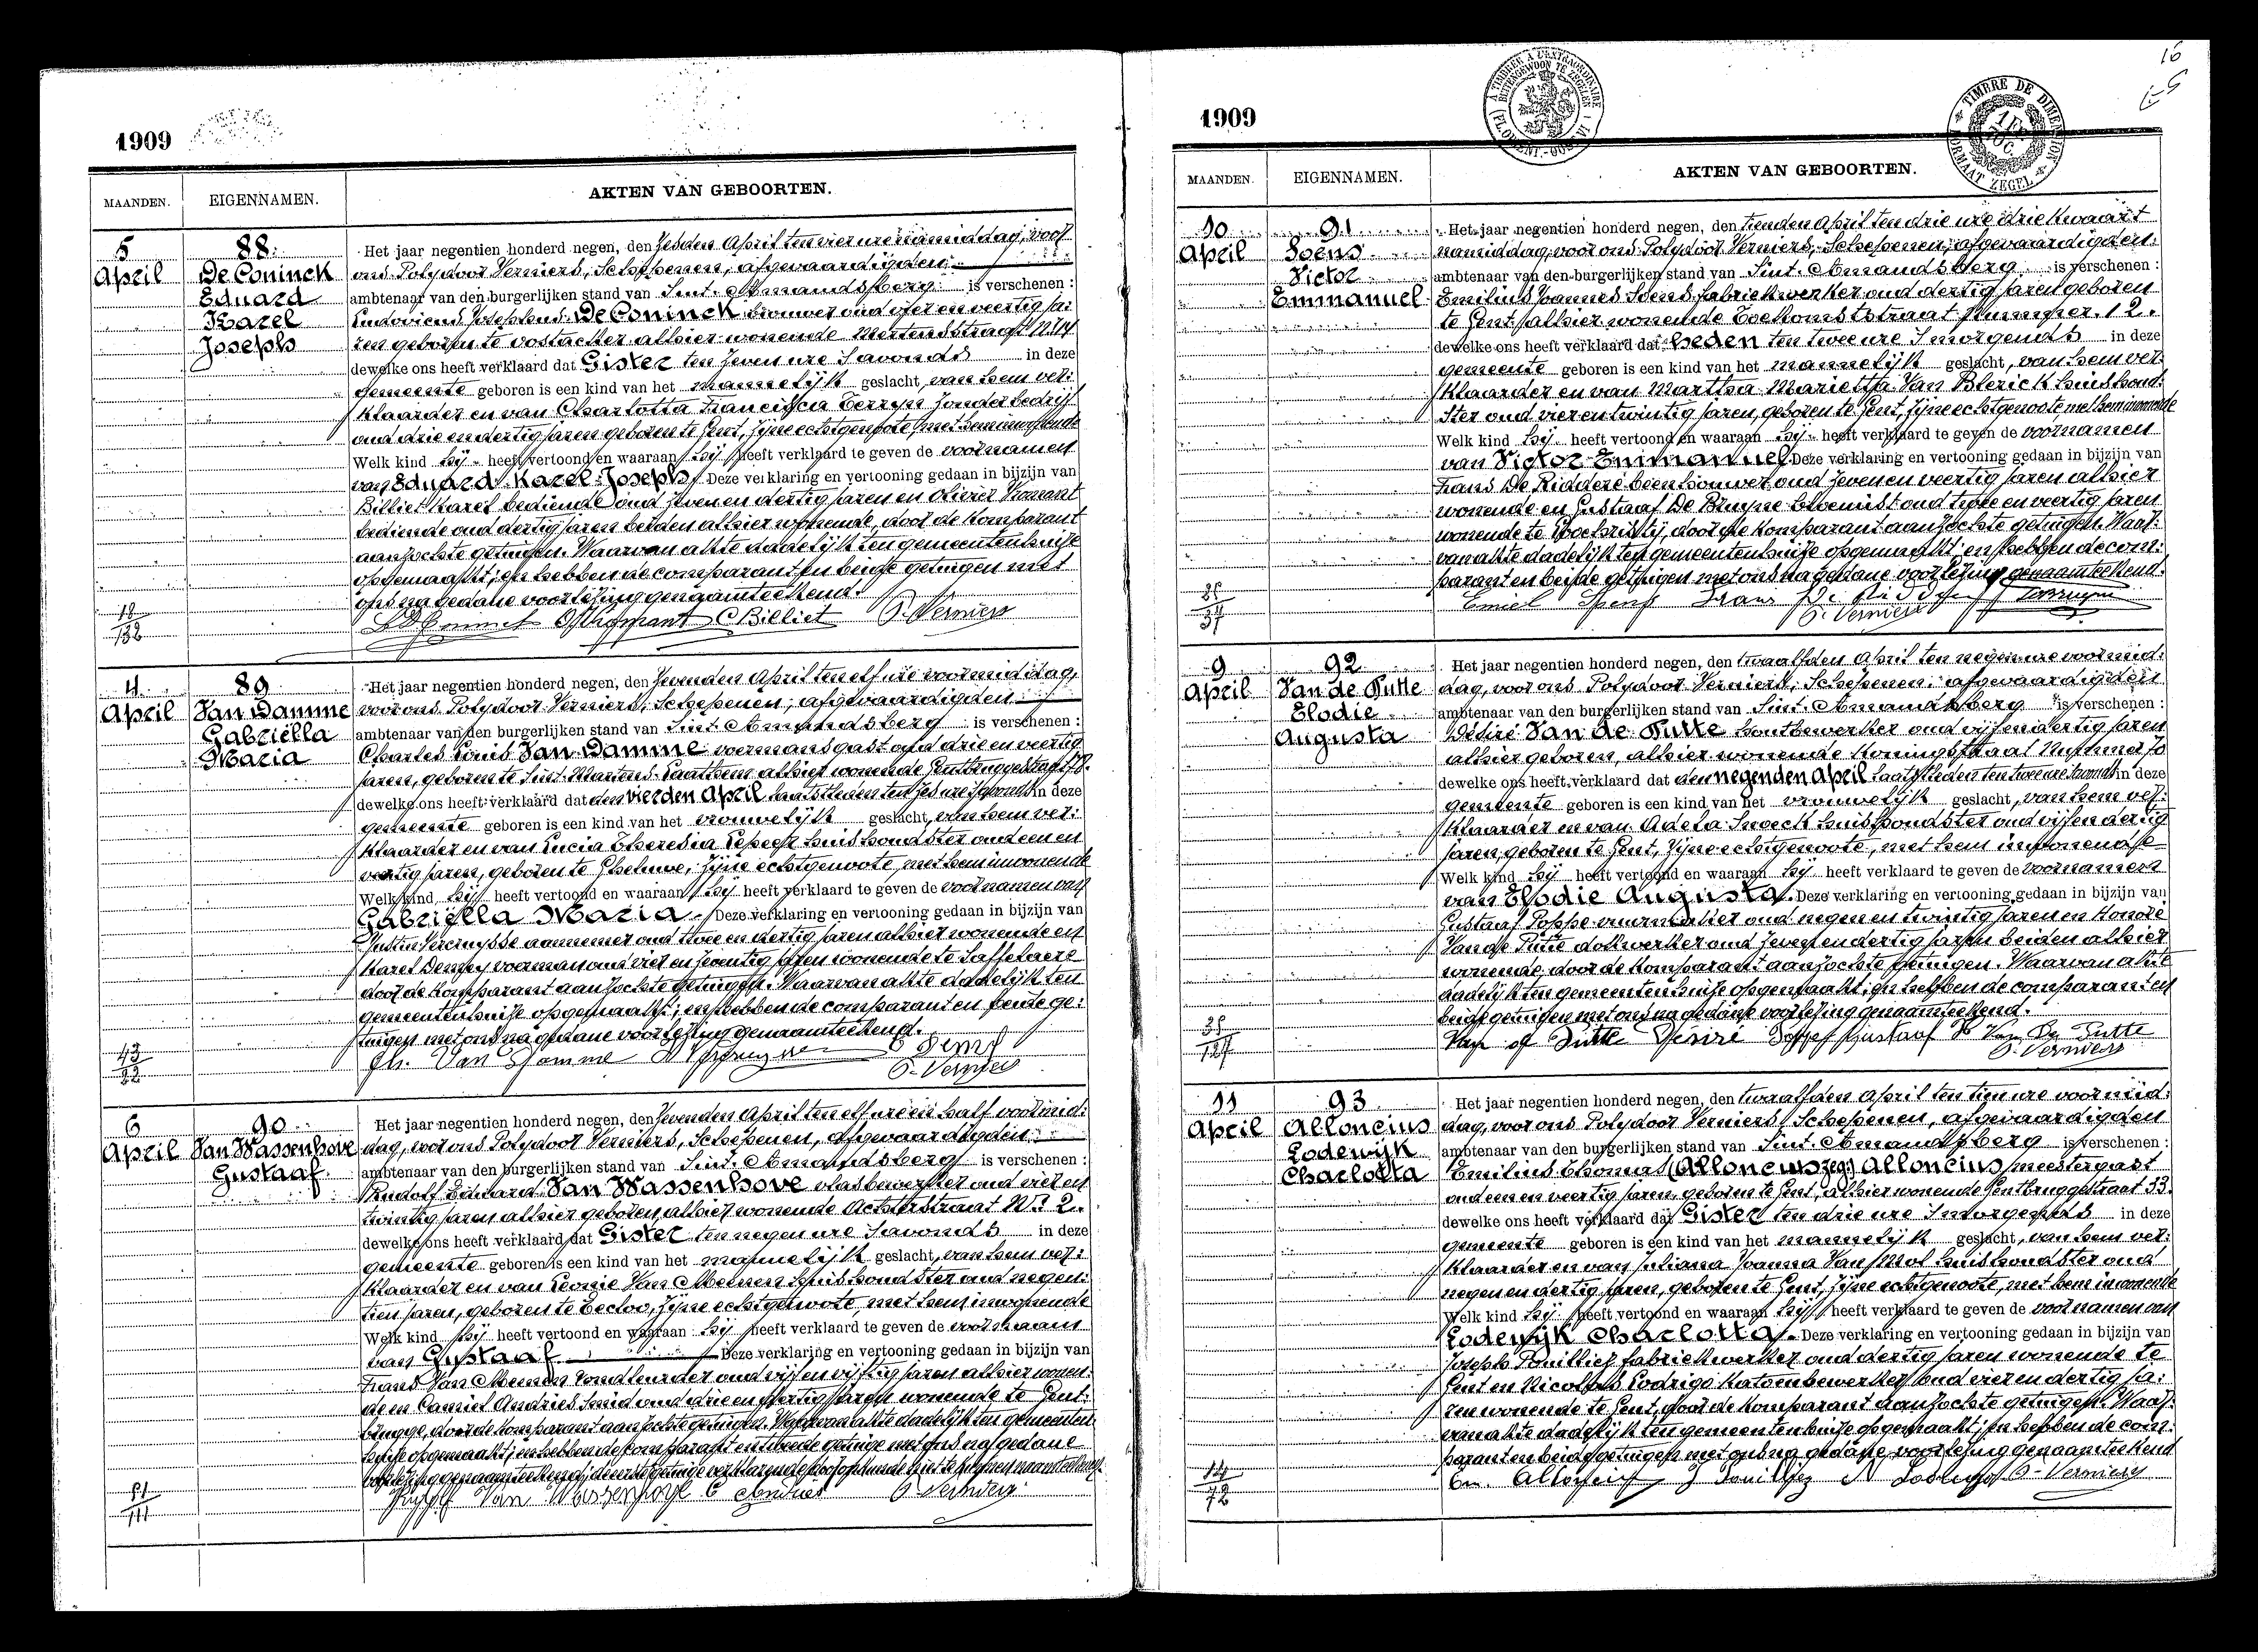 1909
MAANDEN. EIGENNAMEN. AKTEN VAN GEBOORTEN.
5 April
88.
De Coninck
Eduard
Karel
Joseph
Het jaar negentien honderd negen, den zesden April ten vier ure namiddag, voor
ons Polydoor Verniers, Schepenen, afgevaardigden
ambtenaar van den burgerlijken stand van Sint-Amandsberg is verschenen :
Ludovicus Josephus De Coninck brouwer oud vier en veertig ja:
ren geboren te Oostacker alhier wonende Mertensstraat
dewelke ons heeft verklaard dat Gister ten zeven ure 's avonds in deze
gemeente geboren is een kind van het mannelijk geslacht, van hem ver:
klaarder en van Charlotta Francisca zonder bedrijf
oud drie en dertig jaren geboren te Gent, zijne echtgenote, met hem inwonende
Welk kind hij heeft vertoond en waaraan hij heeft verklaard te geven de voornamen
van Eduard Karel Joseph. Deze verklaring en vertooning gedaan in bijzijn van
Billiet Karel bediende oud zeven en dertig jaren en
bediende oud dertig jaren beiden alhier wonende, door de komparant
aanzochte getuigen. Waarvan akte dadelijk ten gemeentenhuize
opgemaakt; en hebben de comparant en beide getuigen met
ons na gedane voorlezing genaamteekend.
C Billiet P. Verniers
4 April
89
Van Damme
Gabriëlla
Maria
Het jaar negentien honderd negen, den zevenden April ten elf ure voormiddag,
voor ons Polydoor Verniers, Schepenen, afgevaardigden
ambtenaar van den burgerlijken stand van Sint-Amandsberg is verschenen :
Charles Louis Van Damme voermansgast oud drie en veertig
jaren, geboren te Sint-Martens-Laathem alhier wonende
dewelke ons heeft verklaard dat den vierden April laatstleden ten zes ure 's avonds in deze
gemeente geboren is een kind van het vrouwelijk geslacht, van hem ver:
klaarder en van Lucia Theresia huishoudster oud een en
veertig jaren, geboren te Gheluwe, zijne echtgenoote, met hem inwonende
Welk kind hij heeft vertoond en waaraan hij heeft verklaard te geven de voornamen van
Gabriëlla Maria. Deze verklaring en vertooning gedaan in bijzijn van
Justin Vercruysse aannemer oud twee en dertig jaren alhier wonende en
Karel voerman oud vier en zeventig jaren wonende te Saffelaere
door de komparant aanzochte getuigen. Waarvan akte dadelijk ten
gemeentenhuize opgemaakt; en hebben de comparant en beide ge:
tuigen met ons na gedane voorlezing genaamteekend.
Ch. Van Damme
P. Verniers
6 April
90
Van Wassenhove
Gustaaf
Het jaar negentien honderd negen, den zevenden April ten elf ure en half voormid:
dag, voor ons Polydoor Verniers, Schepenen, afgevaardigden
ambtenaar van den burgerlijken stand van Sint-Amandsberg is verschenen :
Rudolf Eduard Van Wassenhove vlasbewerker oud vier en
twintig jaren alhier geboren, alhier wonende Achterstraat Nr 2.
dewelke ons heeft verklaard dat Gister ten negen ure 's avonds in deze
gemeente geboren is een kind van het mannelijk geslacht, van hem ver:
klaarder en van Leonie Van Meenen huishoudster oud negen:
tien jaren, geboren te Eecloo, zijne echtgenoote, met hem inwonende
Welk kind hij heeft vertoond en waaraan hij heeft verklaard te geven de voornaam
van Gustaaf Deze verklaring en vertooning gedaan in bijzijn van
Frans Van Meenen oud vijf en vijftig jaren alhier wonen:
de en Camiel Andries smid oud drie en jaren wonende te Gent:
brugge, door de komparant aanzochte getuigen. Waarvan akte dadelijk ten gemeenten:
huize opgemaakt; en hebben de comparant en tweede getuige met ons na gedane
voorlezing genaamteekend; de eerste getuige verklarende
Van Wassenhove C Andries P. Verniers
1909
MAANDEN. EIGENNAMEN. AKTEN VAN GEBOORTEN.
10 April
91
Soens
Victor
Emmanuel
Het jaar negentien honderd negen, den tienden April ten drie ure drie kwaart
namiddag, voor ons Polydoor Verniers, Schepenen, afgevaardigden
ambtenaar van den burgerlijken stand van Sint-Amandsberg is verschenen :
Emilius Joannes Soens fabriekwerker oud dertig jaren geboren
te Gent, alhier wonende Toekomststraat Nummer 12.
dewelke ons heeft verklaard dat heden ten twee ure 's morgends in deze
gemeente geboren is een kind van het mannelijk geslacht, van hem ver:
klaarder en van Martha Marietta Van Blerick huishoud:
ster oud vier en twintig jaren, geboren te Gent, zijne echtgenoote met hem inwonende
Welk kind hij heeft vertoond en waaraan hij heeft verklaard te geven de voornamen
van Victor Emmanuel. Deze verklaring en vertooning gedaan in bijzijn van
Frans De Riddere beenhouwer oud zeven en veertig jaren alhier
wonende en Gustaaf De Bruyne bloemist oud twee en veertig jaren
wonende te Loochristy, door de komparant aanzochte getuigen. Waar:
van akte dadelijk ten gemeentenhuize opgemaakt; en hebben de com:
parant en beide getuigen met ons na gedane voorlezing genaamteekend.
Emiel Soens
P. Verniers
9 April
92
Van de Putte
Elodie
Augusta
Het jaar negentien honderd negen, den twaalfden April ten negen ure voormid:
dag, voor ons Polydoor Verniers, Schepenen, afgevaardigden
ambtenaar van den burgerlijken stand van Sint-Amandsberg is verschenen :
Désiré Van de Putte houtbewerker oud vijf en dertig jaren
alhier geboren, alhier wonende Koningstraat Nummer
dewelke ons heeft verklaard dat den negenden April laatstleden ten twee ure 's avonds in deze
gemeente geboren is een kind van het vrouwelijk geslacht, van hem ver:
klaarder en van Adela Snoeck huishoudster oud vijf en dertig
jaren, geboren te Gent, zijne echtgenoote, met hem inwonende
Welk kind hij heeft vertoond en waaraan hij heeft verklaard te geven de voornamen
van Elodie Augusta. Deze verklaring en vertooning gedaan in bijzijn van
Gustaaf Poppe oud negen en twintig jaren en Honoré
Van de Putte dokwerker oud zeven en dertig jaren beiden alhier
wonende, door de komparant aanzochte getuigen. Waarvan akte
dadelijk ten gemeentenhuize opgemaakt; en hebben de comparant en
beide getuigen met ons na gedane voorlezing genaamteekend.
Van de Putte Desire Gustaaf Van De Putte
P. Verniers
11 April
93
Alloncius
Lodewijk
Charlotta
Het jaar negentien honderd negen, den twaalfden April ten tien ure voormid:
dag, voor ons Polydoor Verniers, Schepenen, afgevaardigden
ambtenaar van den burgerlijken stand van Sint-Amandsberg is verschenen :
Emilius Thomas Alloncius meestergast
oud een en veertig jaren, geboren te Gent, alhier wonende Gentbruggestraat 33.
dewelke ons heeft verklaard dat Gister ten drie ure 's morgends in deze
gemeente geboren is een kind van het mannelijk geslacht, van hem ver:
klaarder en van Juliana Joanna Van Mol huishoudster oud
negen en dertig jaren, geboren te Gent, zijne echtgenoote, met hem inwonende
Welk kind hij heeft vertoond en waaraan hij heeft verklaard te geven de voornamen van
Lodewijk Charlotta. Deze verklaring en vertooning gedaan in bijzijn van
Joseph fabriekwerker oud dertig jaren wonende te
Gent en Nicolas Lodrigo katoenbewerker oud vier en dertig ja:
ren wonende te Gent, door de komparant aanzochte getuigen. Waar:
van akte dadelijk ten gemeentenhuize opgemaakt; en hebben de com:
parant en beide getuigen met ons na gedane voorlezing genaamteekend
P. Verniers